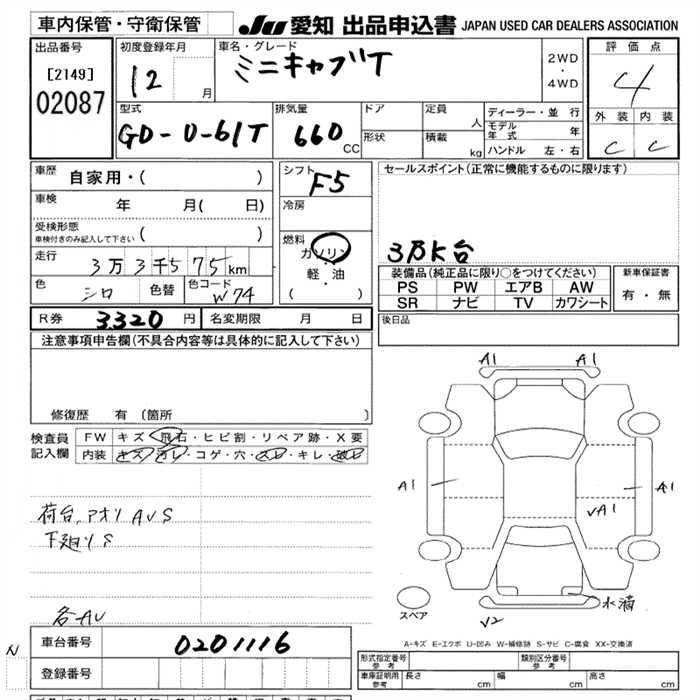 車内保管・守衛保管
JU 愛知 出品申込書 JAPAN USED CAR DEALERS ASSOCIATION
出品番号
[2149]
02087
初度登録年月
12 月
車名・グレード
ミニキャブT
2WD
・
4WD
評価点
4
外装 内装
C C
型式
GD-U-61T
排気量
660 CC
ドア
形状
定員 人
積載 kg
ディーラー・並行
モデル年式 年
ハンドル 左・右
車歴 自家用・( )
車検 年 月( 日)
受検形態
車検付きのみ記入して下さい ( )
走行 3万3千575km
色 シロ 色替 色コード W74
シフト
F5
冷房
燃料
ガソリン
・
軽・油
( )
セールスポイント(正常に機能するものに限ります)
3万K台
装備品(純正品に限り○をつけてください)
PS PW エアB AW
SR ナビ TV カワシート
新車保証書
有・無
R券 3320円 名変期限 月 日
後日品
注意事項申告欄(不具合内容等は具体的に記入して下さい)
修復歴 有 (箇所
検査員
記入欄
FW キズ・飛石・ヒビ割・リペア跡・X要
内装 キズ・汚レ・コゲ・穴・スレ・キレ・破レ
荷台、アオリ AUS
下廻り S
各AU
A1 A1
A1 A1
VA1
水滴
V2
スペア
A-キズ E-エクボ U-凹み W-補修跡 S-サビ C-腐食 XX-交換済
N
車台番号 0201116
登録番号
形式指定番号 参考
類別区分番号 参考
車庫証明用 参考
長さ cm 幅 cm 高さ cm